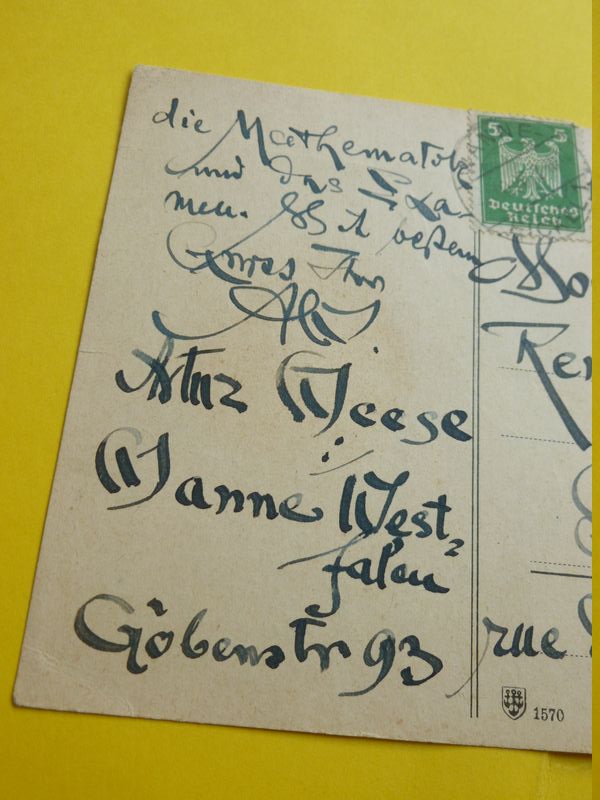 die Mathematik
und das Exa-
men. Mit beßem
Gruss Ihr
Artur Weese
Wanne West-
falen
Göbenstr 93
5 5
Deutsches
Reich
rue
1570